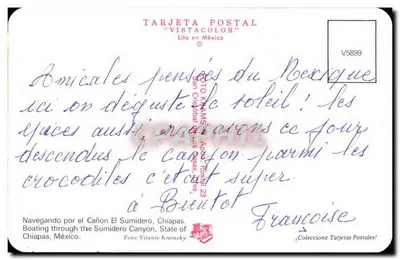 TARJETA POSTAL
"VISTACOLOR"
Lito en México
©
V5899
Amicales pensées du Mexique
ici on déguste le soleil! les
glaces aussi, ce jour
descendus le canyon parmi les
crocodiles c'était super.
à Bientot
Françoise
Navegando por el Cañon El Sumidero, Chiapas.
Boating through the Sumidero Canyon, State of
Chiapas, México.
Foto: Vicente Kramsky
¡Coleccione Tarjetas Postales!